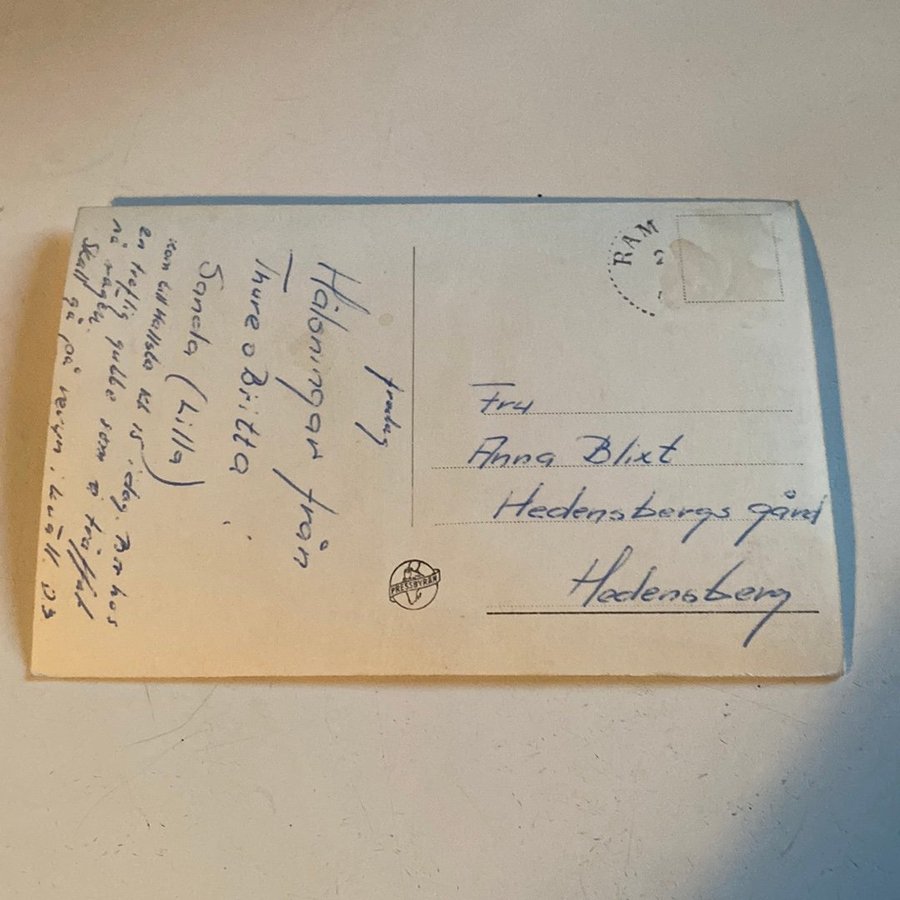 fredag
Hälsningar från
Thure o Britta
Sanda (Lilla)
kom till Hallsta kl 15 idag. Bor hos
en treflig gubbe som vi träffat
på vägen.
Skall gå på revyn i kväll
RAM
PRESSBYRÅN
Fru
Anna Blixt
Hedensbergs gård
Hedensberg